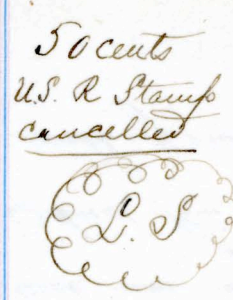 50 cents
U.S. R Stamp
cancelled
L. S